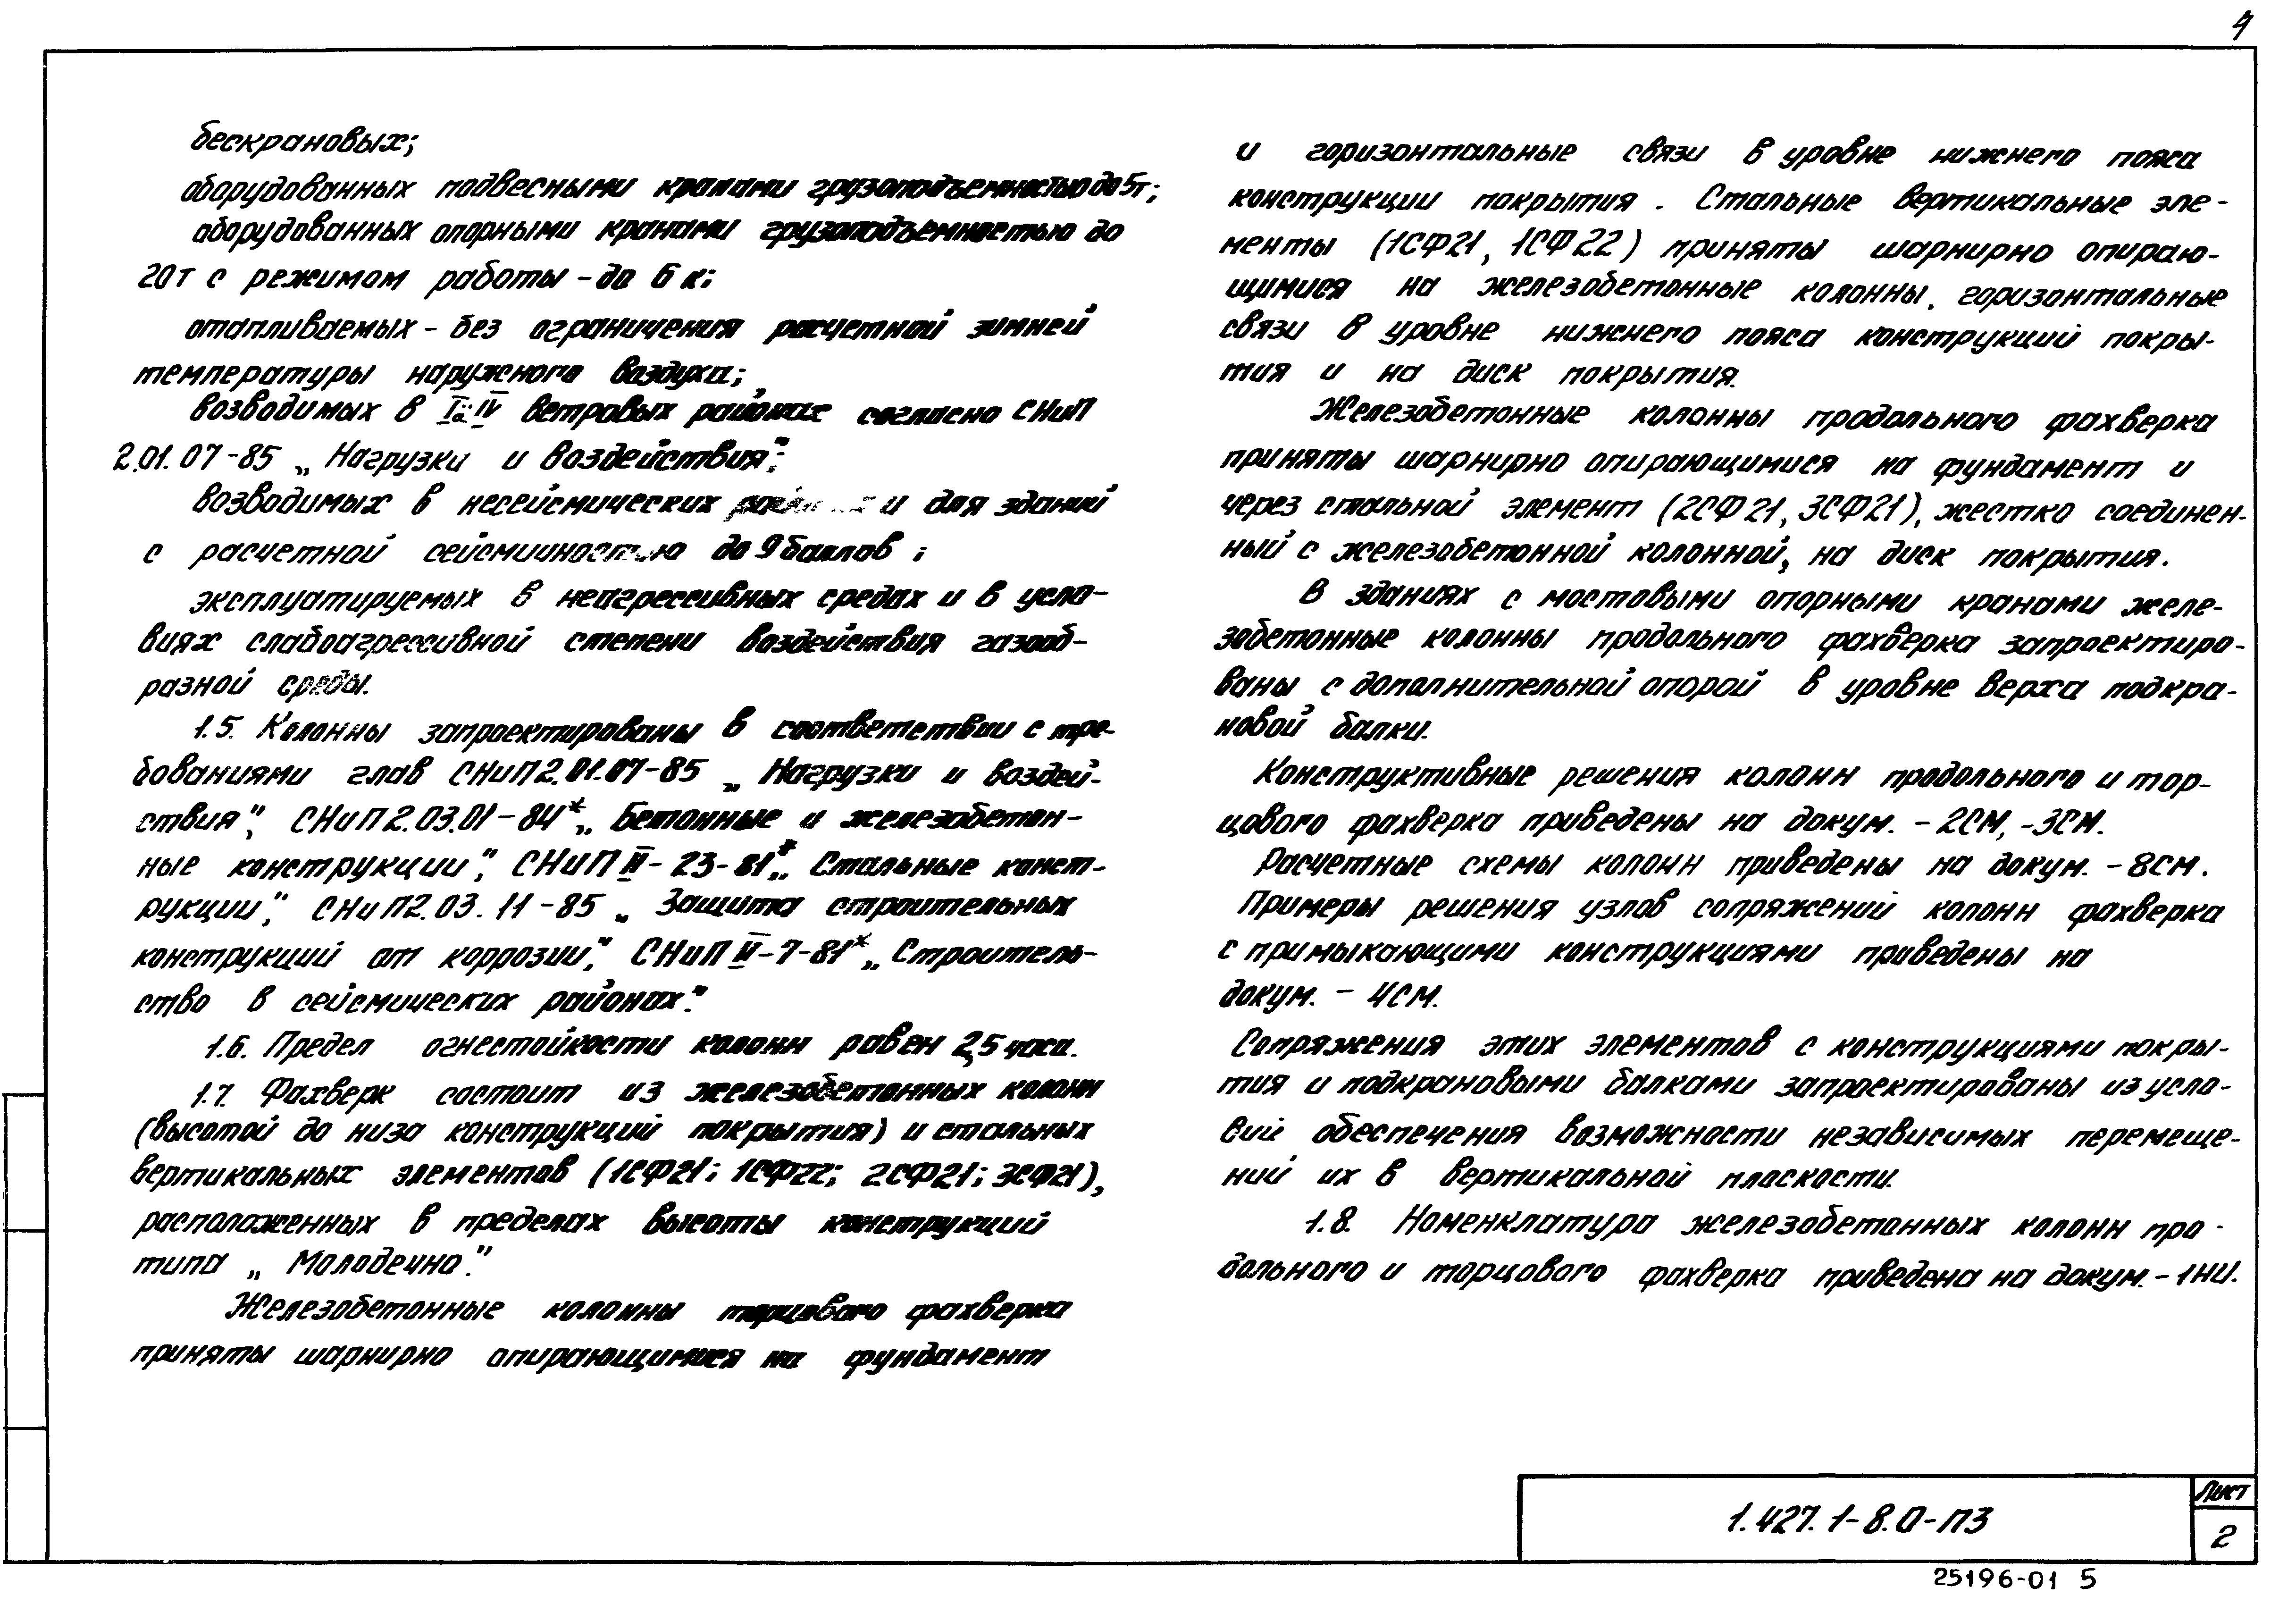 4
бескрановых;
оборудованных подвесными кранами грузоподъемностью до 5т;
оборудованных опорными кранами грузоподъемностью до
20т с режимом работы - до 6 к;
отапливаемых - без ограничения расчетной зимней
температуры наружного воздуха;
возводимых в Iа÷IV ветровых районах согласно СНиП
2.01.07-85 „Нагрузки и воздействия";
возводимых в несейсмических и для зданий
с расчетной сейсмичностью до 9 баллов ;
эксплуатируемых в неагрессивных средах и в усло-
виях слабоагрессивной степени воздействия газооб-
разной среды.
1.5. Колонны запроектированы в соответствии с тре-
бованиями глав СНиП 2.01.07-85 „Нагрузки и воздей-
ствия", СНиП 2.03.01-84* „Бетонные и железобетон-
ные конструкции", СНиП II-23-81* „Стальные конст-
рукции", СНиП 2.03.11-85 „Защита строительных
конструкций от коррозии", СНиП II-7-81* „Строитель-
ство в сейсмических районах".
1.6. Предел огнестойкости колонн равен 2,5 часа.
1.7. Фахверк состоит из железобетонных колонн
(высотой до низа конструкций покрытия) и стальных
вертикальных элементов (1СФ21; 1СФ22; 2СФ21; 3СФ21),
расположенных в пределах высоты конструкций
типа „Молодечно."
Железобетонные колонны торцового фахверка
приняты шарнирно опирающимися на фундамент
и горизонтальные связи в уровне нижнего пояса
конструкции покрытия . Стальные вертикальные эле-
менты (1СФ21, 1СФ22) приняты шарнирно опираю-
щимися на железобетонные колонны, горизонтальные
связи в уровне нижнего пояса конструкций покры-
тия и на диск покрытия.
Железобетонные колонны продольного фахверка
приняты шарнирно опирающимися на фундамент и
через стальной элемент (2СФ21, 3СФ21), жестко соединен-
ный с железобетонной колонной, на диск покрытия.
В зданиях с мостовыми опорными кранами желе-
зобетонные колонны продольного фахверка запроектиро-
ваны с дополнительной опорой в уровне верха подкра-
новой балки.
Конструктивные решения колонн продольного и тор-
цового фахверка приведены на докум. - 2СМ, -3СМ.
Расчетные схемы колонн приведены на докум. - 8СМ.
Примеры решения узлов сопряжений колонн фахверка
с примыкающими конструкциями приведены на
докум. - 4СМ.
Сопряжения этих элементов с конструкциями покры-
тия и подкрановыми балками запроектированы из усло-
вий обеспечения возможности независимых перемеще-
ний их в вертикальной плоскости.
1.8. Номенклатура железобетонных колонн про-
дольного и торцового фахверка приведена на докум. - 1НИ.
1.427.1-8.0-ПЗ
Лист
2
25196-01 5